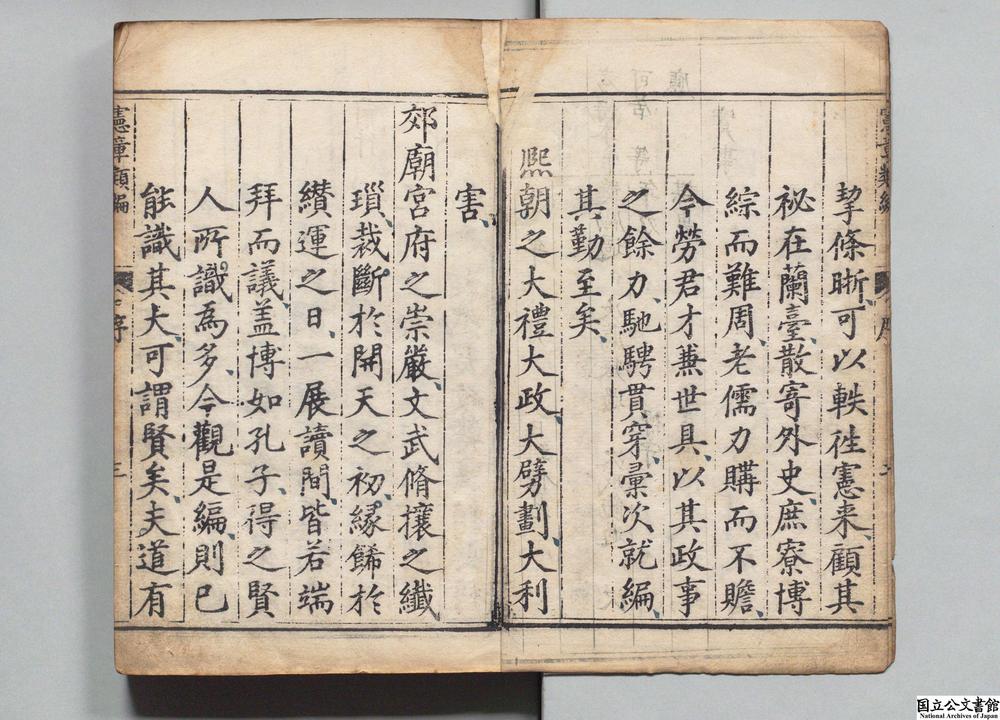 憲章類編
序
挈條晰、可以軼徃憲来、顧其
祕在蘭臺、散寄外史、庶寮博
綜而難周、老儒力購而不贍、
今勞君才蕪世具、以其政事
之餘力、馳騁貫穿、彙次就編、
其勤至矣、
熙朝之大禮大政、大劈劃、大利
害、
郊廟宮府之崇嚴、文武脩攘之纎
瑣、裁斷於開天之初、縁餙於
纉運之日、一展讀間皆若端
拜而議、盖博如孔子、得之賢
人所識為多、今觀是編、則已
能識其大、可謂賢矣、夫道有
憲章類編
序
三
国立公文書館
National Archives of Japan